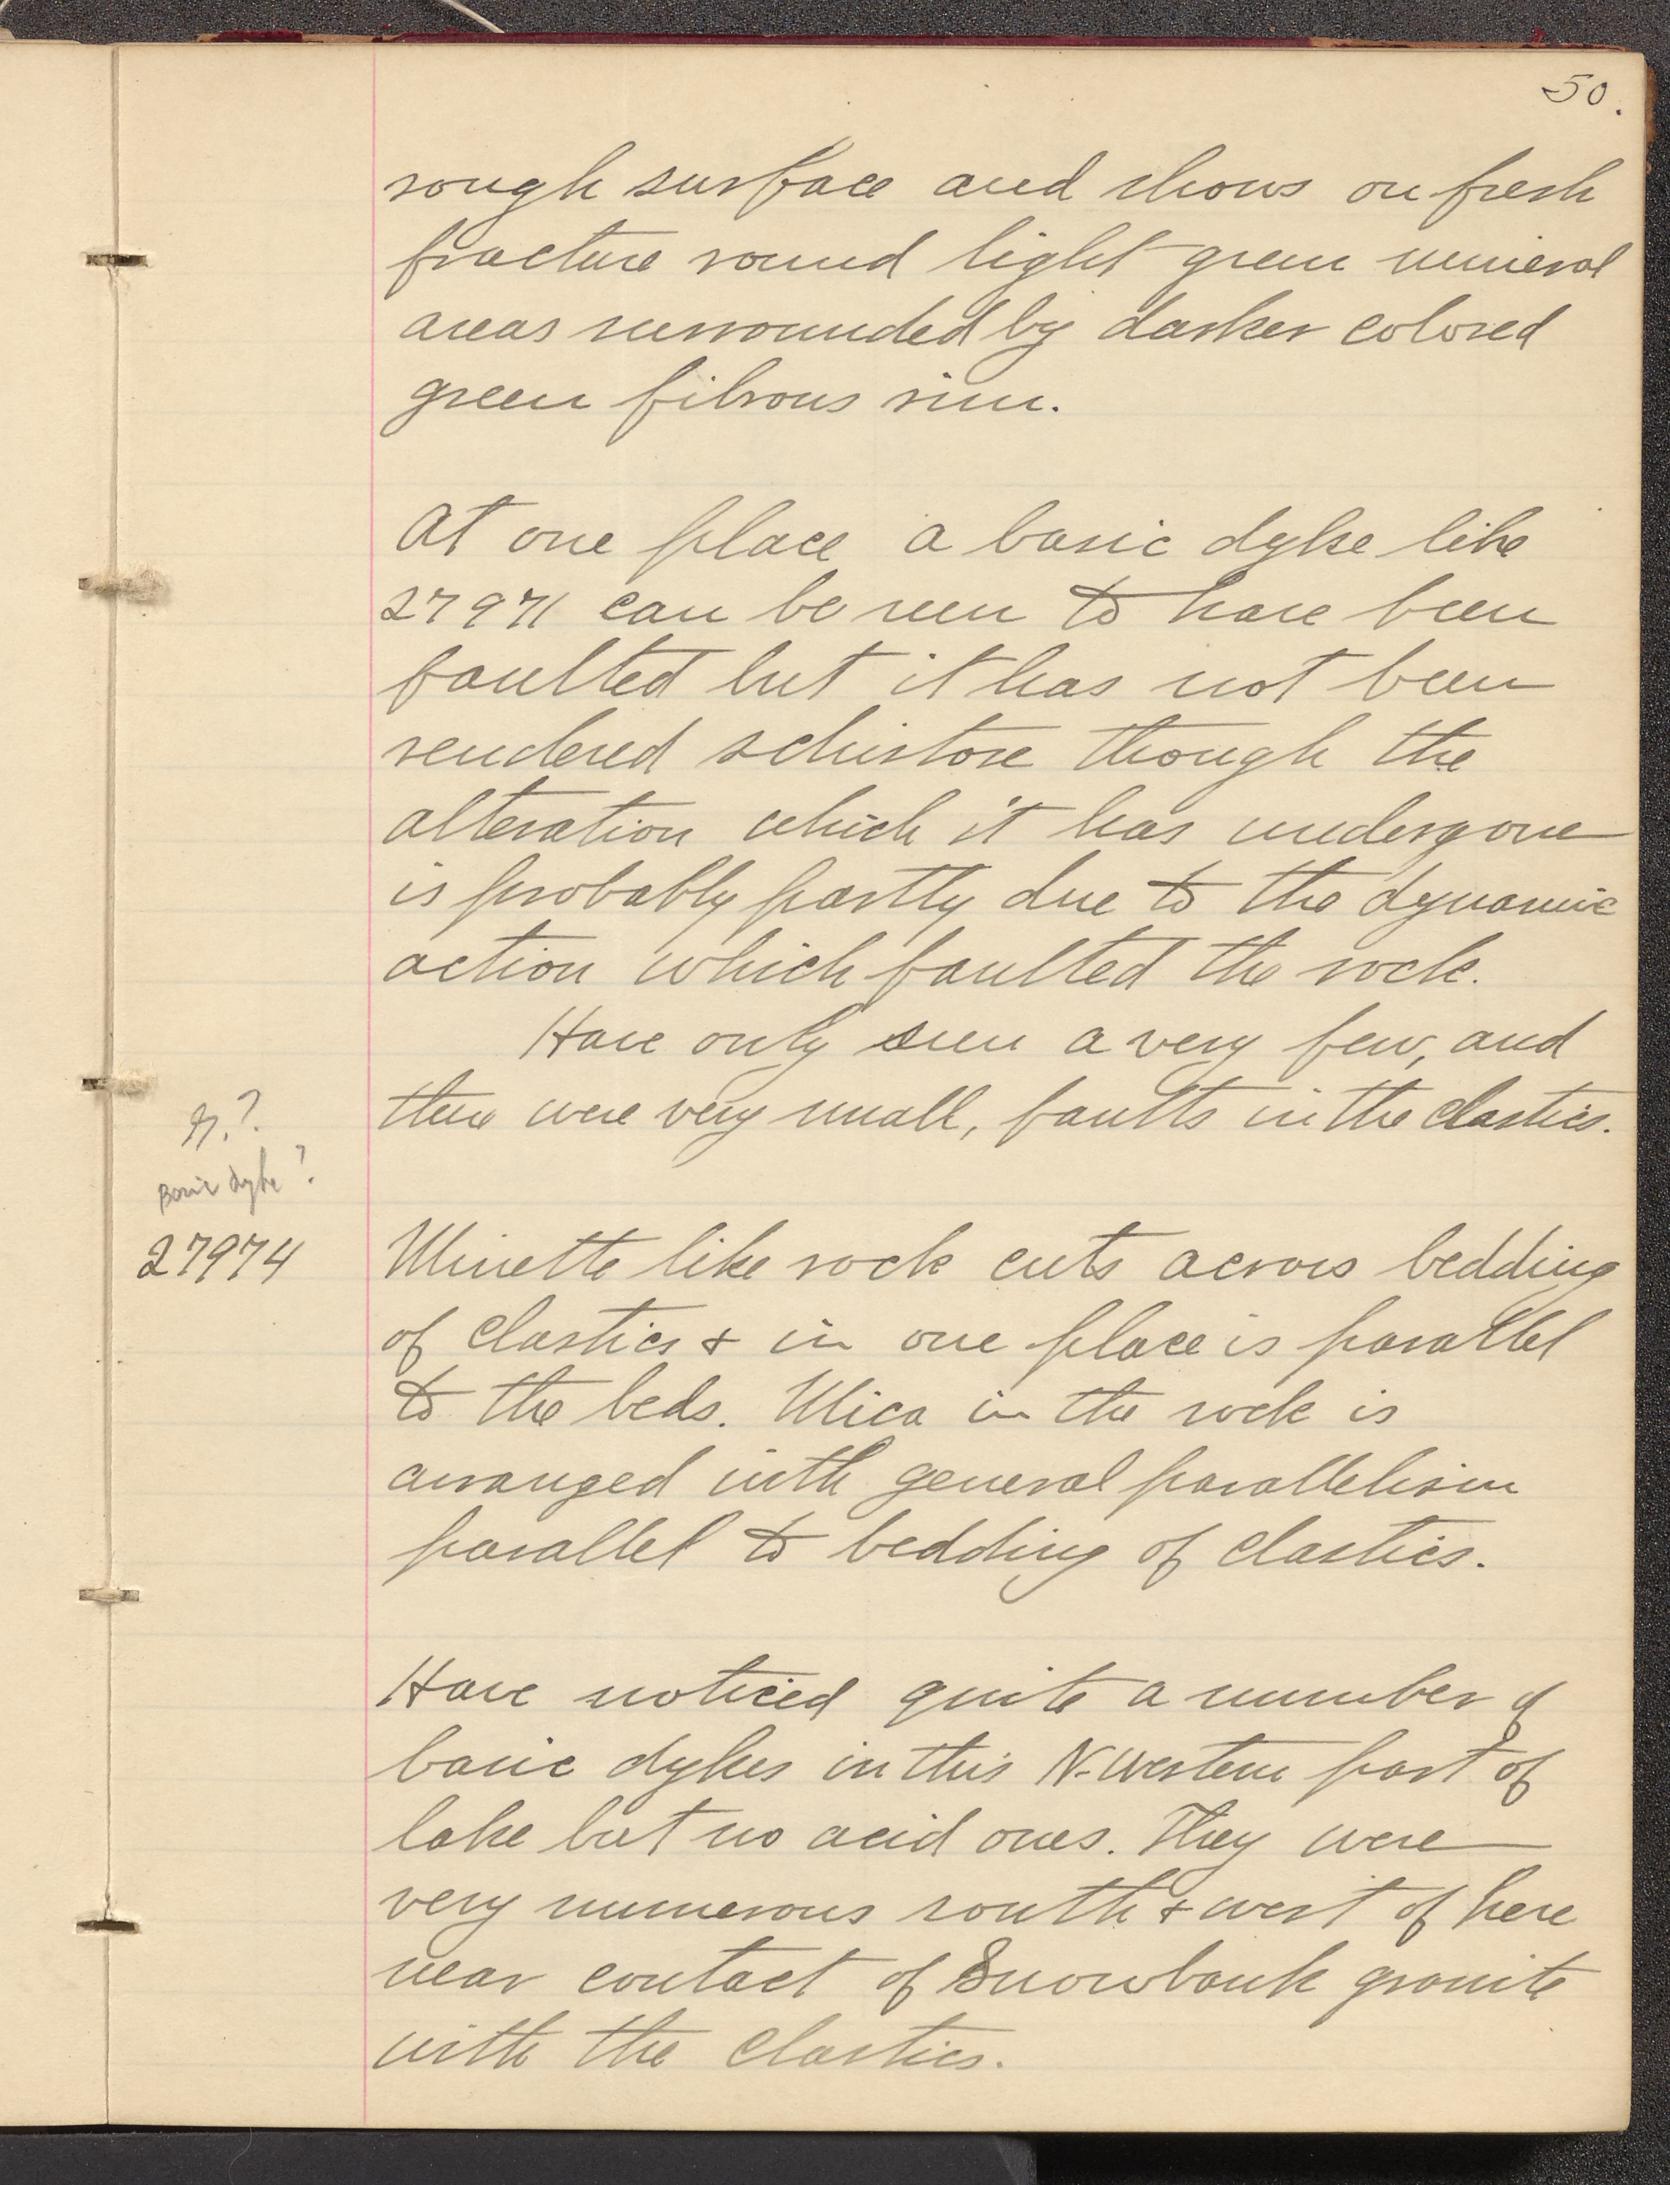 50.
rough surface and shows on fresh
fracture round light green mineral
areas surrounded by darker colored
green fibrous rim.
At one place a basic dyke like
27971 can be seen to have been
faulted but it has not been
rendered schistose though the
alteration which it has undergone
is probably partly due to the dynamic
action which faulted the rock.
Have only seen a very few, and
these were very small, faults in the clastics.
Basic dyke?
27974
Minette like rock cuts across bedding
of clastics & in one place is parallel
to the beds. Mica in the rock is
arranged with general parallelism
parallel to bedding of clastics.
Have noticed quite a number of
basic dykes in this N-Western part of
lake but no acid ones. They were
very numerous south & west of here
near contact of Snowbank granite
with the clastics.